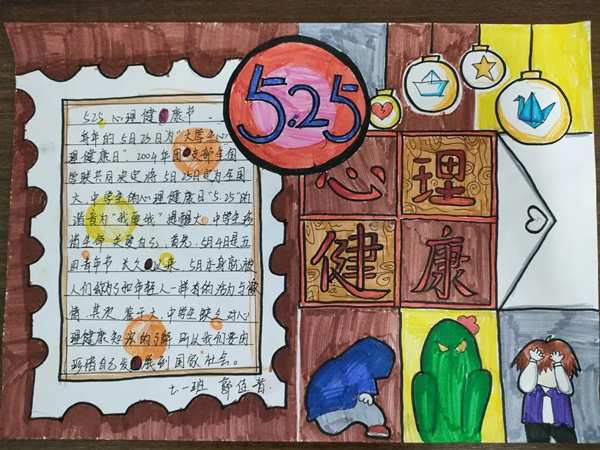 5.25
心理
健康
525 心理健康书
每年的5月25日为"大学生心
理健康日"。2004年团 支部全国
学联共同决定将5月25日定为全国
大、中学生的心理健康日"5.25"的
谐音为"我爱我" 提醒大、中学生珍
惜生命 关爱自己,首先,5月4日是五
四青年节 长久 以来, 5月亦身就被
人们做为和年轻人一样有的活力与激
情,其次,鉴于大、中学生缺乏对心
理健康知识的了解 所以我们要由
珍惜自己发 展到国家社会。
七一班